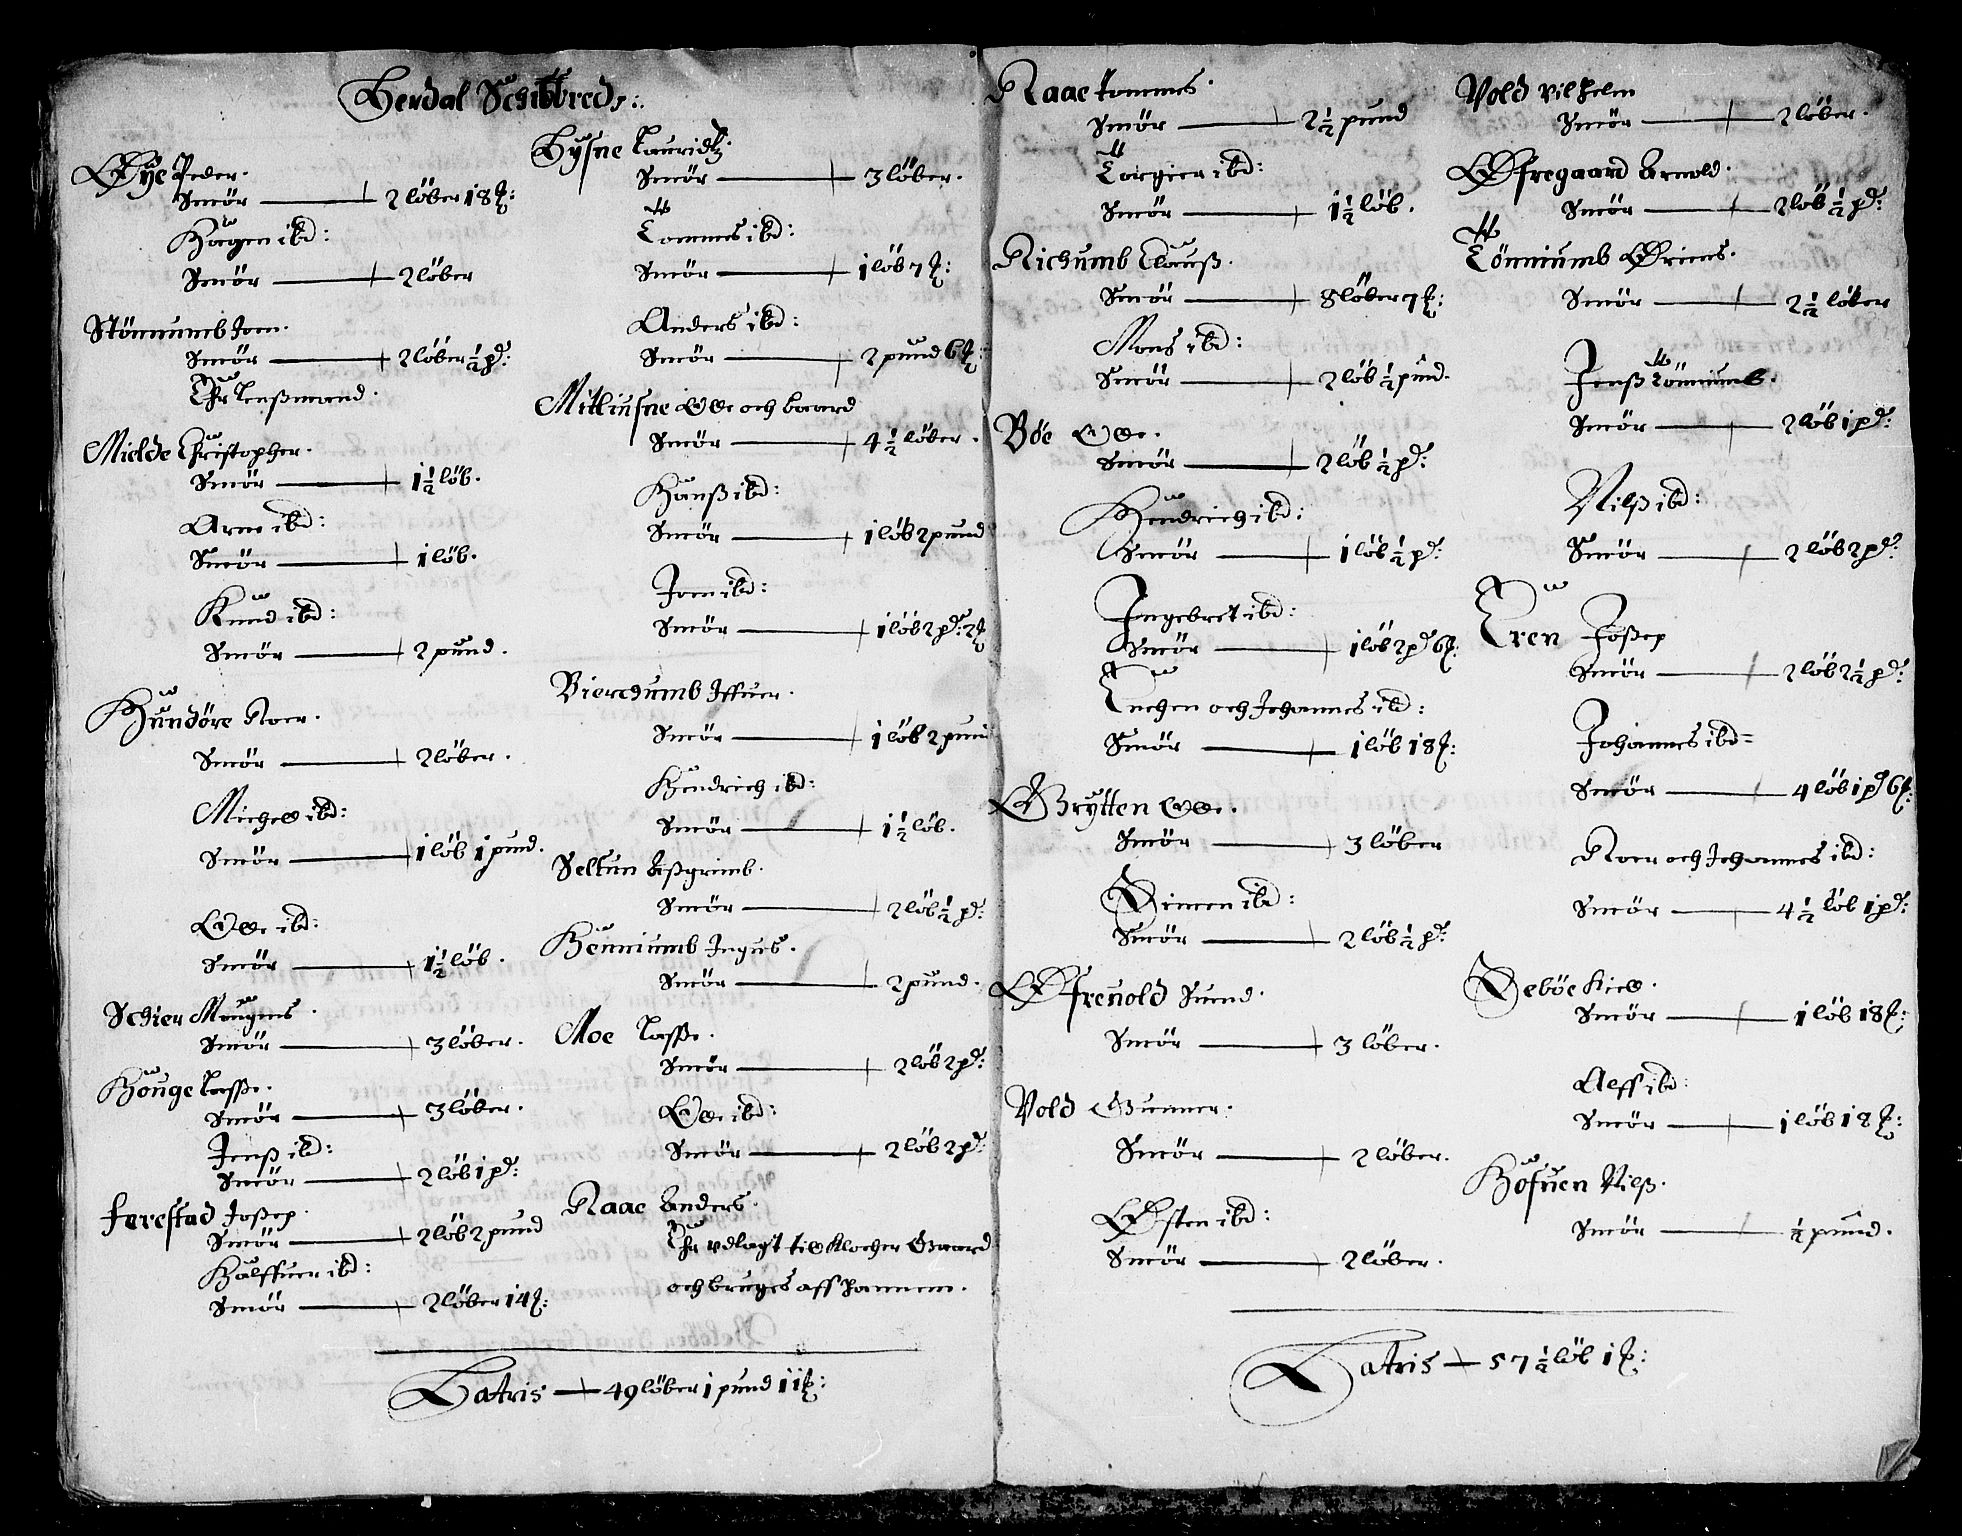 Lerdal Schibbred:
Øye Peder.
Smör — 2 löber 18 ℔:
Hagen ibd:
Smör — 2 löber
Stönnumb Joen.
Smör — 2 löber ½ pd:
Er Lenßmand.
Mielde Christopher.
Smör — 1½ löb.
Arne ibd:
Smör — 1 löb.
Knud ibd:
Smör — 2 pund.
Hundöre Roer.
Smör — 2 löber.
Michel ibd:
Smör — 1 löb 1 pund.
Olle ibd:
Smör — 1½ löb.
Schier Mougens.
Smör — 3 löber.
Houge Lasse.
Smör — 3 löber.
Jenß ibd:
Smör — 2 löb 1 pd:
Ferestad Joßep.
Smör — 2 löb 2 pund
Halffuer ibd:
Smör — 2 löber 14 ℔:
Lysne Lauridtz.
Smör — 3 löber.
Tommes ibd:
Smör — 1 löb 7 ℔:
Anders ibd:
Smör — 2 pund 6 ℔:
Mitliusne Olle och baard
Smör — 4½ löber.
Hanß ibd:
Smör — 1 löb 2 pund
Joen ibd:
Smör — 1 löb 2 pd: 2 ℔
Bierchumb Iffuer.
Smör — 1 löb 2 pund
Hendrich ibd:
Smör — 1½ löb.
Seltun Aßgrimb.
Smör — 2 löb ½ pd:
Henniumb Inguel.
Smör — 2 pund.
Moe Lasse.
Smör — 2 löb 2 pd:
Olle ibd:
Smör — 2 löb 2 pd:
Raae Anders.
Er udlagt till Klocher Gaard
och bruges aff hannem.
Latris — 49 löber 1 pund 11 ℔:
Raae tommes.
Smör — 2½ pund
Torgier ibd:
Smör — 1½ löb.
Richumb Clauß.
Smör — 8 löber 7 ℔:
Mons ibd:
Smör — 2 löb ½ pund.
Böe Olle.
Smör — 2 löb ½ pd:
Hendrich ibd:
Smör — 1 löb ½ pd:
Ingebret ibd:
Smör — 1 löb 2 pd 6 ℔:
Enchen och Johannes ibd:
Smör — 1 löb 18 ℔:
Grytten Olle.
Smör — 3 löber
Simen ibd:
Smör — 2 löb ½ pd:
Øfreuold Suend.
Smör — 3 löber.
Vold Gunner.
Smör — 2 löber.
Østen ibd:
Smör — 2 löber.
Vold Vilhelm
Smör — 2 löber.
Øfregaard Arnold.
Smör — 2 löb ½ pd:
Tönniumb Griens.
Smör — 2½ löber
Jenß Tönniumb.
Smör — 2 löb 1 pd:
Nilß ibd:
Smör — 2 löb 2 pd:
Eren Joßep
Smör — 2 löb 2½ pd:
Johannes ibd=
Smör — 4 löb 1 pd 6 ℔:
Roer och Johannes ibd:
Smör — 4½ löb 1 pd:
Seböe Kield.
Smör — 1 löb 18 ℔:
Alff ibd:
Smör — 1 löb 18 ℔:
Hofuen Nilß.
Smör — ½ pund.
Latris — 57½ löb 1 ℔: